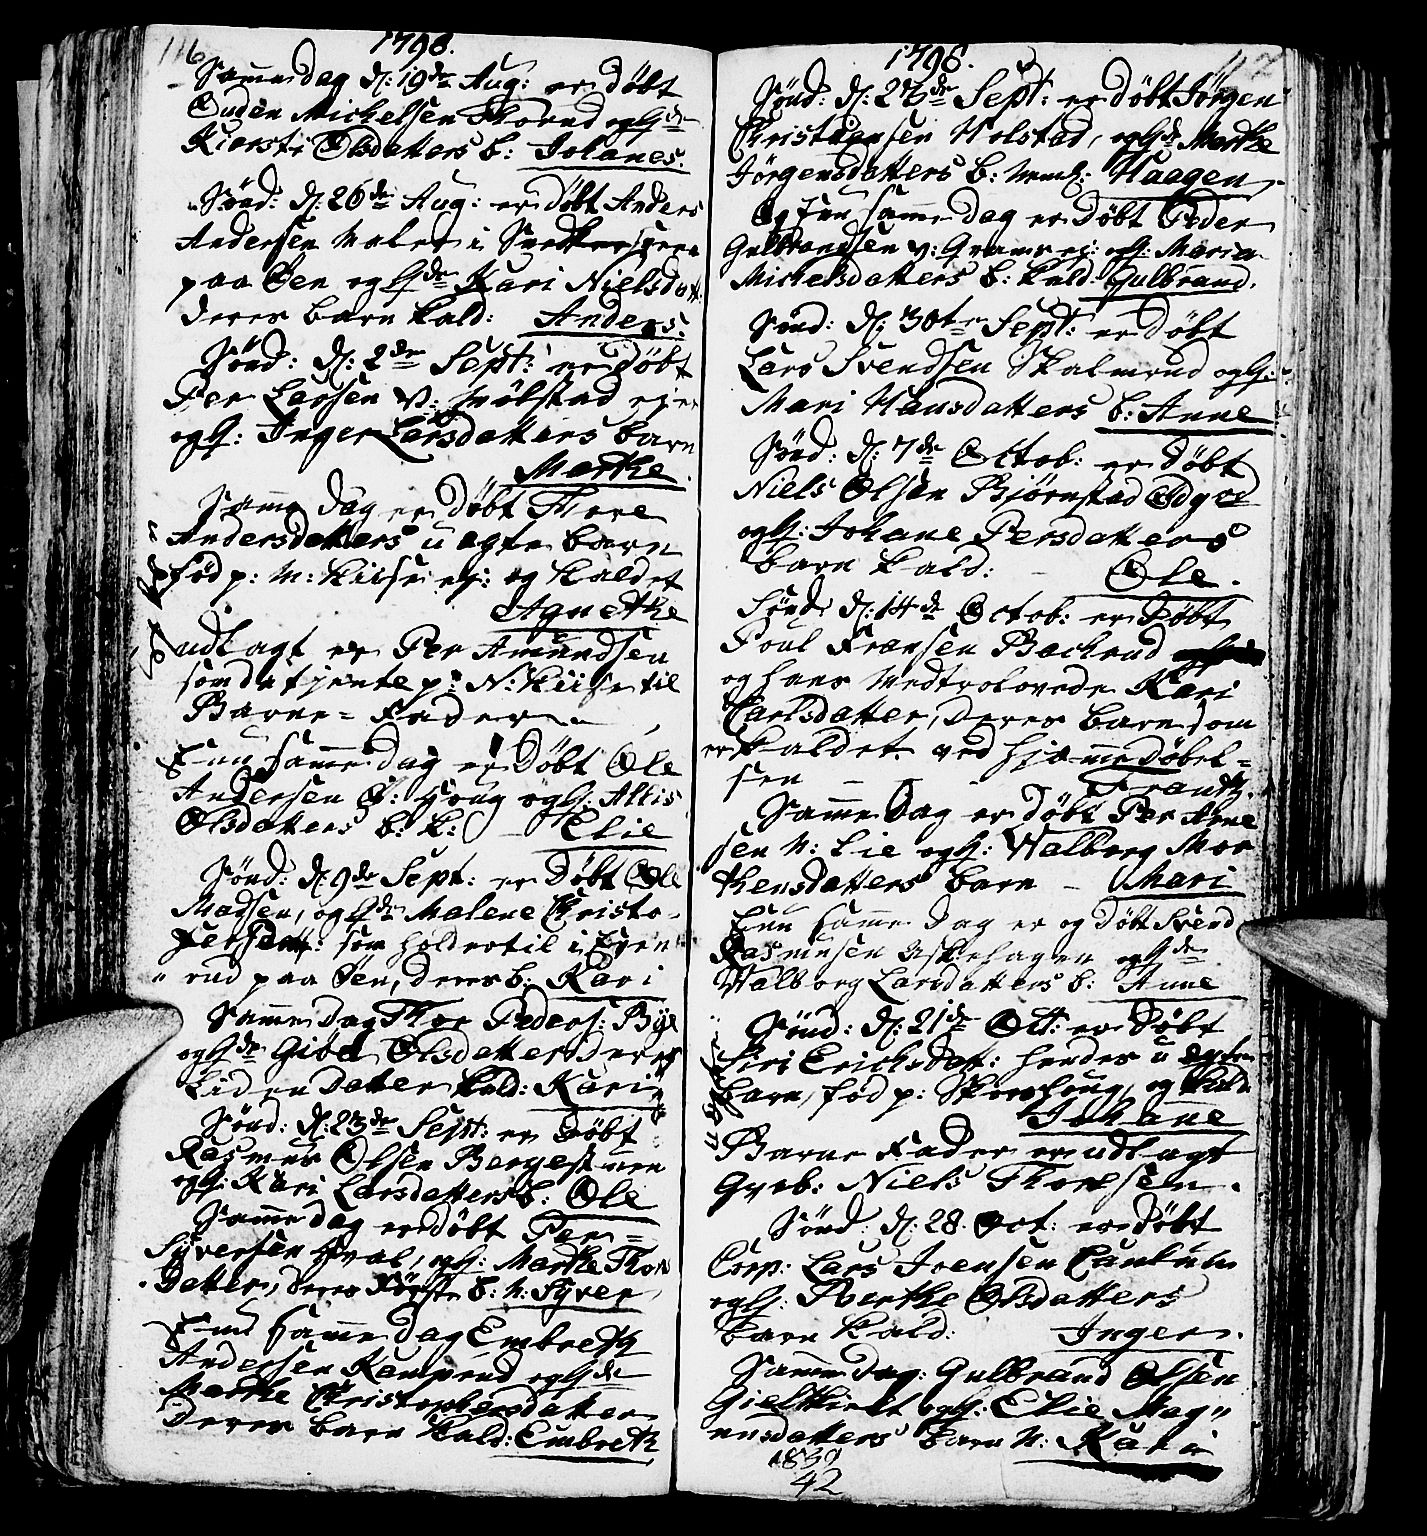 116
1798.
Samme dag d: 19de Aug: er døbt
Ouden Michelsen Thorud og Hde
Kiersti Olsdatters b: Johanes.
Sönd: d: 26de Aug: er døbt Anders
Andersen Maler i
paa Øen og Hde Kari Nielsdatt:
deres barn kald: Anders.
Sönd: d: 2de Sept: er døbt
Per Larsen v: Mölstad eje
og H: Inger Larsdatters barn
Marthe.
Samme dag er døbt Thore
Andersdatters uægte barn
fød p: N: Kiise ej: og kaldet
Agnethe
udlagt er Per Amundsen
som da tjente p: N: Kiise til
Barne-Fader
Enu samme dag er døbt Ole
Andersen Ø: Houg og H: Allis
Olsdatters b: k: Elie
Sönd: d: 9de Sept: er døbt Ole
Madsen, og Hde Malene Christo-
fersdatt: som holder til i Egen
rud paa Øen, deres b: Kari
Samme dag Thor Peders: Bye
og Hde Giød Olsdatter deres
liden datter kald: Kari
Sönd: d: 23de Sept: er døbt
Rasmus Olsen Bergestuen
og H: Kari Larsdatters b: Ole
Samme dag er døbt Per
Syversen Hval, og H: Marthe Thor
datter, deres Förste b: N: Syver
Enu samme dag Embreth
Andersen Kamperud og Hde
Marthe Christophersdatter
deres barn kald: Embreth
117
1798.
Sönd: d: 23de Sept: er døbt Jørgen
Christiansen Holstad, og Hde Marthe
Jörgensdatters b: Haagen
Og Enu samme dag er døbt Peder
Gulbrandsen v: Grams ej: og H: Maria
Michelsdatters b: kald: Gulbrand.
Sönd: d: 30te Sept: er døbt
Lars Svendsen Skalmrud og H:
Mari Hansdatters b: Anne
Sönd: d: 7de Octob: er døbt
Niels Olsen Bjørnstad
og H: Johane Persdatters
barn kald: Ole.
Sönd: d: 14de Octob: er døbt
Poul Fransen Bachrud
og hans medtrolovede Kari
Carlsdatter, deres barn som
er kaldet ved hjemmedøbel-
sen Frantz.
Samme dag er døbt Per Arne
sen N: Lie og H: Walborg Mor
thensdatters barn Mari
Enu samme dag er og døbt Svend
Rasmusen Askehagen og Hde
Walborg Larsdatters b: Anne
Sönd: d: 21de Oct: er døbt
Siri Erichsdat: hendes uægte
barn, fød p: og kald
Johane
Barne Fader er udlagt
Gveb: Niels Thorsen.
Sönd: d: 28. Oct: er døbt
Corp: Lars Joensen
og H: Berthe Olsdatters
barn kald: Inger.
Samme dag: Gulbrand Olsen
og H: Elie Mag"
nusdatters barn N: Kari
1839
42